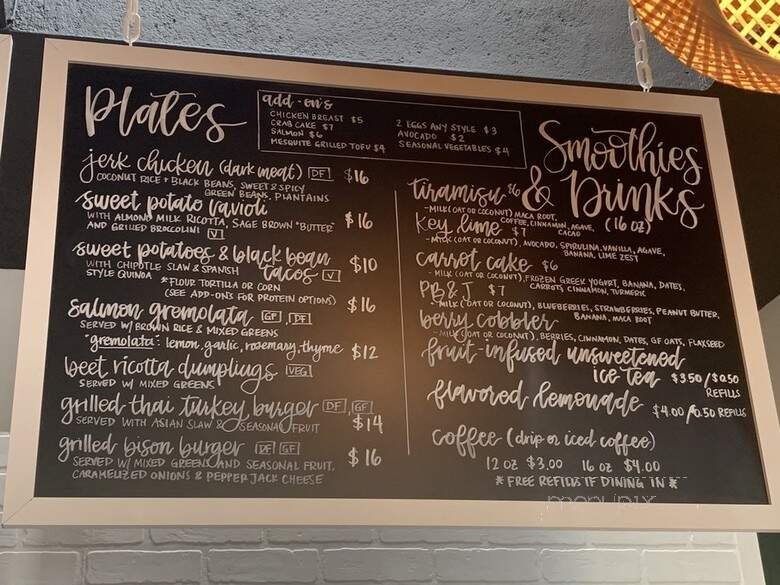 Plates
add-ons
CHICKEN BREAST $5
CRAB CAKE $7
SALMON $6
MESQUITE GRILLED TOFU $4
2 EGGS ANY STYLE $3
AVOCADO $2
SEASONAL VEGETABLES $4
jerk chicken (dark meat) DF $16
COCONUT RICE + BLACK BEANS, SWEET & SPICY
GREEN BEANS, PLANTAINS
sweet potato ravioli
WITH ALMOND MILK RICOTTA, SAGE BROWN "BUTTER" $16
AND GRILLED BROCCOLINI V
sweet potatoes & black bean
tacos V $10
WITH CHIPOTLE SLAW & SPANISH
STYLE QUINOA *FLOUR TORTILLA OR CORN
(SEE ADD-ONS FOR PROTEIN OPTIONS)
salmon gremolata GF, DF $16
SERVED W/ BROWN RICE & MIXED GREENS
"gremolata": lemon, garlic, rosemary, thyme
beet ricotta dumplings VEG $12
SERVED W/ MIXED GREENS
grilled thai turkey burger DF, GF
SERVED WITH ASIAN SLAW & SEASONAL FRUIT $14
grilled bison burger DF GF $16
SERVED W/ MIXED GREENS AND SEASONAL FRUIT,
CARAMELIZED ONIONS & PEPPER JACK CHEESE
Smoothies
& Drinks
(16 oz)
tiramisu $6
- MILK (OAT OR COCONUT) MACA ROOT,
COFFEE, CINNAMAN, AGAVE,
CACAO
Key lime $7
- MILK (OAT OR COCONUT), AVOCADO, SPIRULINA, VANILLA, AGAVE,
BANANA, LIME ZEST
carrot cake $6
- MILK (OAT OR COCONUT), FROZEN GREEK YOGURT, BANANA, DATES,
CARROTS, CINNAMON, TURMERIC
PB & J $7
- MILK (OAT OR COCONUT), BLUEBERRIES, STRAWBERRIES, PEANUT BUTTER,
BANANA, MACA ROOT
berry cobbler
- MILK (OAT OR COCONUT), BERRIES, CINNAMON, DATES, GF OATS, FLAXSEED
fruit-infused unsweetened
ice tea $3.50/$0.50
REFILLS
flavored lemonade $4.00/0.50 REFILLS
coffee (drip or iced coffee)
12 oz $3.00 16 oz $4.00
* FREE REFILLS IF DINING IN *